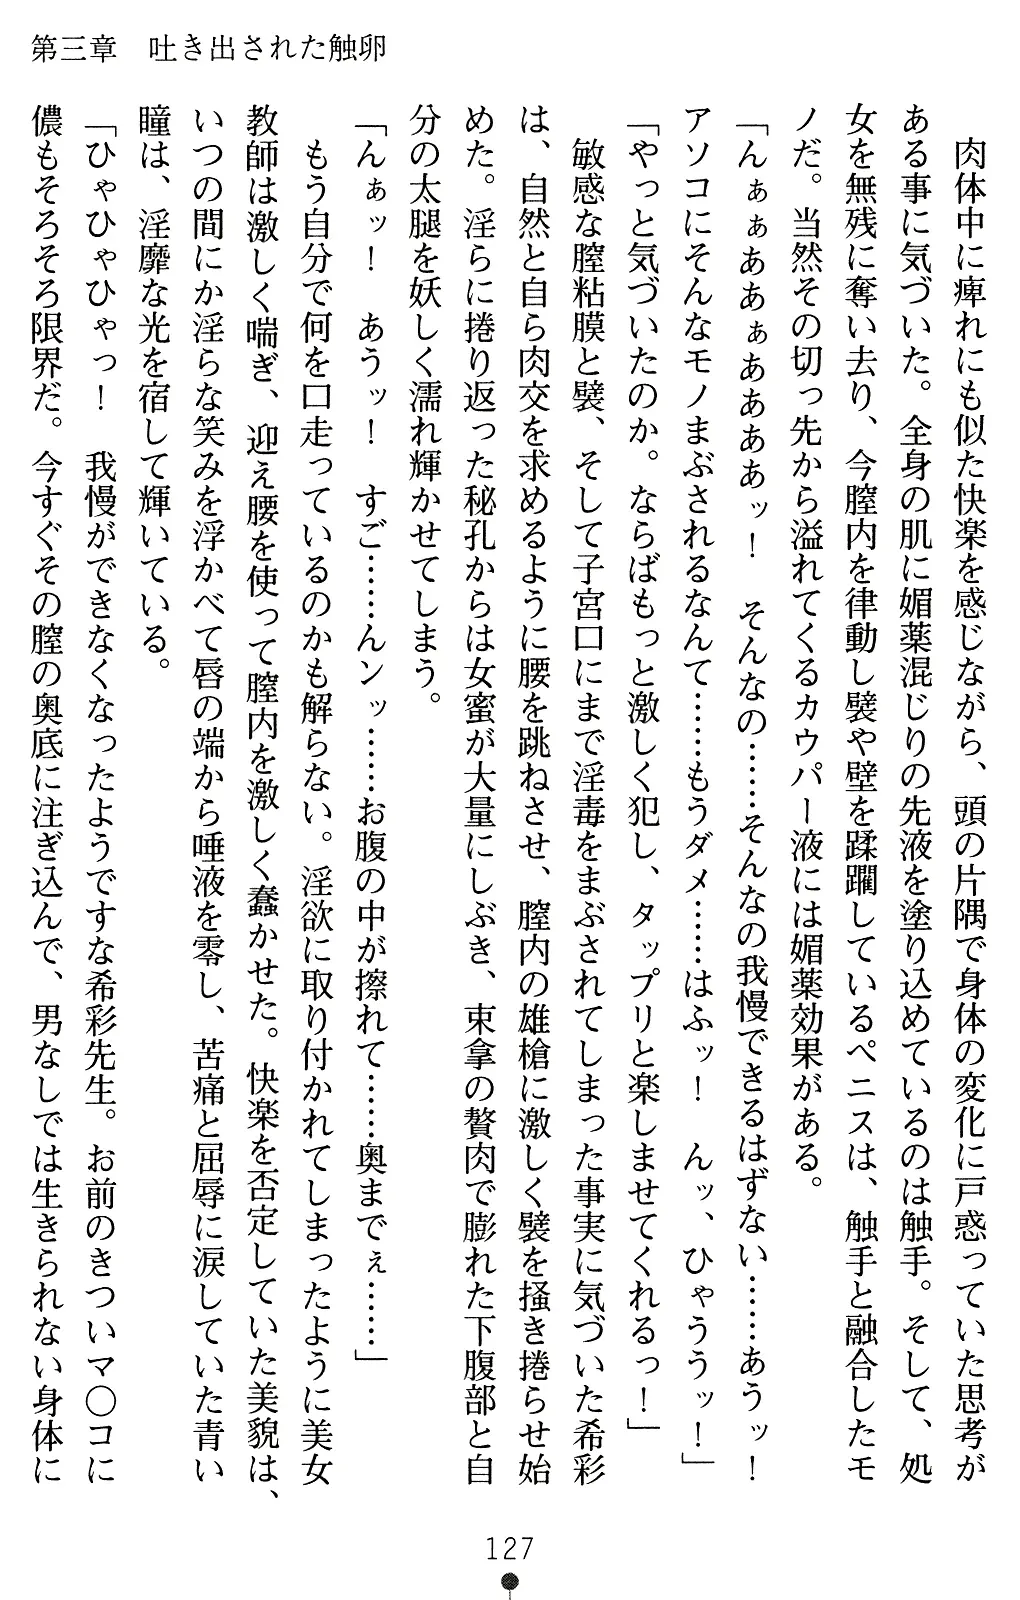 第三章　吐き出された触卵
　肉体中に痺れにも似た快楽を感じながら、頭の片隅で身体の変化に戸惑っていた思考が
ある事に気づいた。全身の肌に媚薬混じりの先液を塗り込めているのは触手。そして、処
女を無残に奪い去り、今膣内を律動し襞や壁を蹂躙しているペニスは、触手と融合したモ
ノだ。当然その切っ先から溢れてくるカウパー液には媚薬効果がある。
「んぁぁああぁあああッ！　そんなの……そんなの我慢できるはずない……あうッ！
アソコにそんなモノまぶされるなんて……もうダメ……はふッ！　んッ、ひゃううッ！」
「やっと気づいたのか。ならばもっと激しく犯し、タップリと楽しませてくれるっ！」
　敏感な膣粘膜と襞、そして子宮口にまで淫毒をまぶされてしまった事実に気づいた希彩
は、自然と自ら肉交を求めるように腰を跳ねさせ、膣内の雄槍に激しく襞を掻き捲らせ始
めた。淫らに捲り返った秘孔からは女蜜が大量にしぶき、束拿の贅肉で膨れた下腹部と自
分の太腿を妖しく濡れ輝かせてしまう。
「んぁッ！　あうッ！　すご……んンッ……お腹の中が擦れて……奥までぇ……」
　もう自分で何を口走っているのかも解らない。淫欲に取り付かれてしまったように美女
教師は激しく喘ぎ、迎え腰を使って膣内を激しく蠢かせた。快楽を否定していた美貌は、
いつの間にか淫らな笑みを浮かべて唇の端から唾液を零し、苦痛と屈辱に涙していた青い
瞳は、淫靡な光を宿して輝いている。
「ひゃひゃひゃっ！　我慢ができなくなったようですな希彩先生。お前のきついマ〇コに
儂もそろそろ限界だ。今すぐその膣の奥底に注ぎ込んで、男なしでは生きられない身体に
127